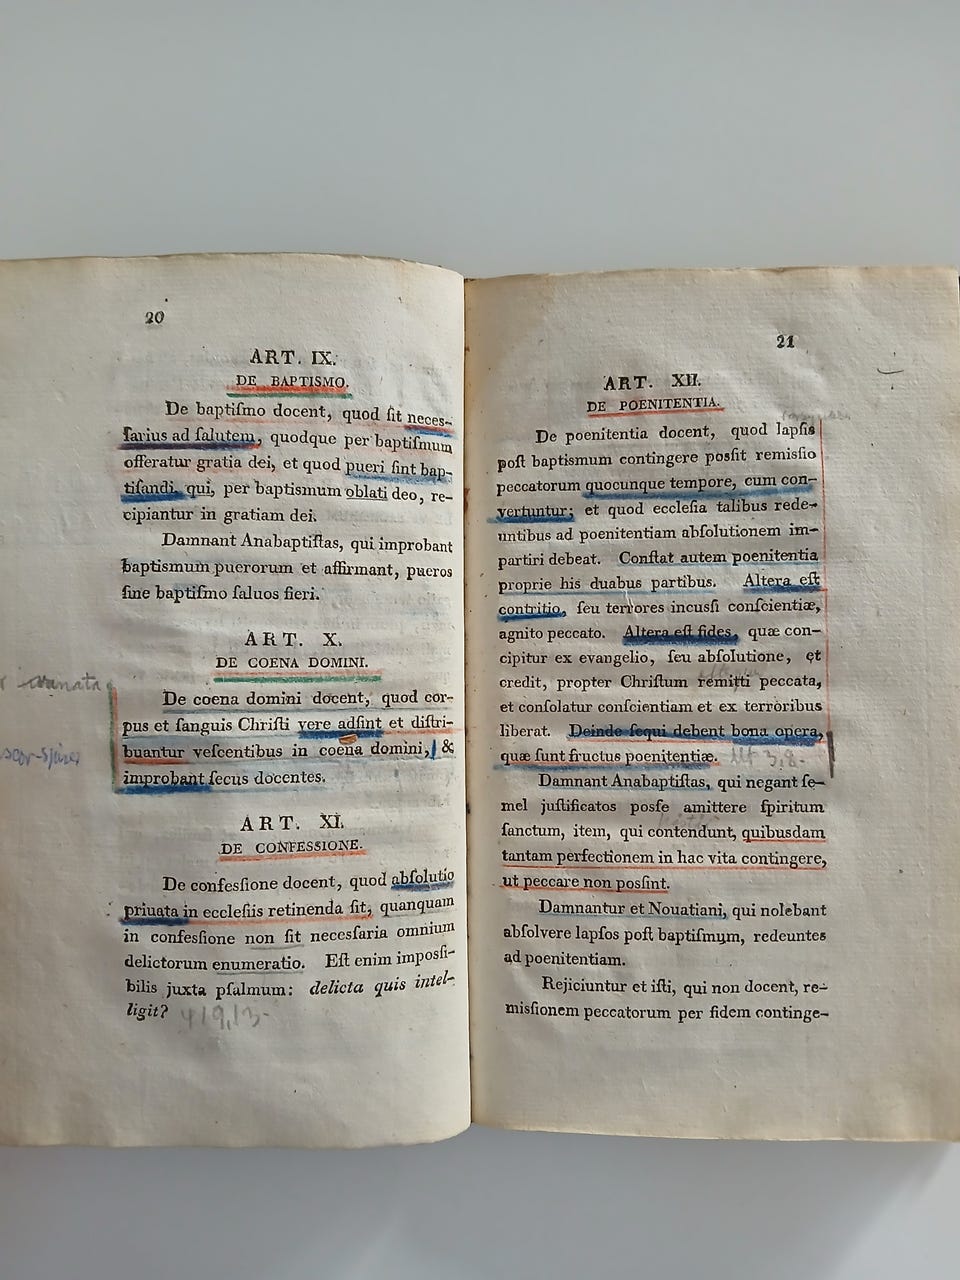 20
ART. IX.
DE BAPTISMO.
De baptiſmo docent, quod ſit neceſ-
ſarius ad ſalutem, quodque per baptiſmum
offeratur gratia dei, et quod pueri ſint bap-
tiſandi, qui, per baptismum oblati deo, re-
cipiantur in gratiam dei.
Damnant Anabaptiſtas, qui improbant
baptismum puerorum et affirmant, pueros
ſine baptiſmo ſaluos fieri.
ART. X.
DE COENA DOMINI.
De coena domini docent, quod cor-
pus et ſanguis Chriſti vere adſint et diſtri-
buantur veſcentibus in coena domini, &
improbant ſecus docentes.
ART. XI.
DE CONFESSIONE.
De confeſſione docent, quod abſolutio
priuata in eccleſiis retinenda ſit, quanquam
in confeſſione non ſit neceſſaria omnium
delictorum enumeratio. Eſt enim impoſſi-
bilis juxta pſalmum: delicta quis intel-
ligit?
21
ART. XII.
DE POENITENTIA.
De poenitentia docent, quod lapſis
poſt baptismum contingere poſſit remiſſio
peccatorum quocunque tempore, cum con-
vertuntur; et quod eccleſia talibus rede-
untibus ad poenitentiam abſolutionem im-
partiri debeat. Conſtat autem poenitentia
proprie his duabus partibus. Altera eſt
contritio, ſeu terrores incuſſi conſcientiæ,
agnito peccato. Altera eſt fides, quæ con-
cipitur ex evangelio, ſeu abſolutione, et
credit, propter Chriſtum remitti peccata,
et conſolatur conſcientiam et ex terroribus
liberat. Deinde ſequi debent bona opera,
quæ ſunt fructus poenitentiæ. Mt 3,8.
Damnant Anabaptiſtas, qui negant ſe-
mel juſtificatos poſſe amittere ſpiritum
ſanctum, item, qui contendunt, quibusdam
tantam perfectionem in hac vita contingere,
ut peccare non poſſint.
Damnantur et Nouatiani, qui nolebant
abſolvere lapſos poſt baptiſmum, redeuntes
ad poenitentiam.
Rejiciuntur et iſti, qui non docent, re-
miſſionem peccatorum per fidem continge-